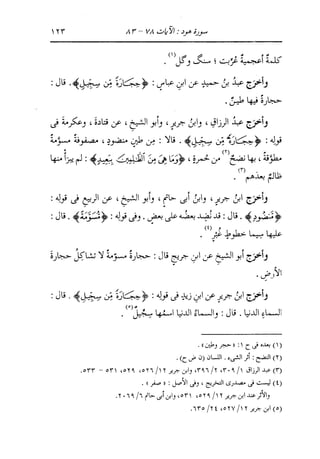 سورة هود : الآيات ٧٨ - ٨٣
١٢٣
كلمةٌ أعجميةٌ عُرِّبت ؛ سنگ وگل(١) .
وأخرَج عبدُ بنُ حميدٍ عن ابنِ عباسٍ : ﴿حِجَارَةٌ مِّن سِجِّيلٍ﴾ . قال :
حجارةٌ فيها طينٌ .
وأخرَج عبدُ الرزاقِ ، وابنُ جريرٍ ، وأبو الشيخِ ، عن قتادةَ ، وعكرمةَ فى
قولِه : ﴿حِجَارَةً مِّن سِجِّيلٍ﴾ . قالا : مِن طينٍ منضودٍ ، مصفوفةٌ مسوَّمةٌ
مطوَّقةٌ ، بها نضحٌ(٢) من حُمرةٍ ، ﴿وَمَا هِىَ مِنَ ٱلظَّٰلِمِينَ بِبَعِيدٍ﴾ : لم يبرَأْ منها
ظالمٌ بعدَهم(٣) .
وأخرَج ابنُ جريرٍ ، وابنُ أبى حاتمٍ ، وأبو الشيخِ ، عن الربيعِ فى قولِه :
﴿مَّنضُودٍ﴾ . قال : قد نُضِد بعضُه على بعضٍ . وفى قولِه : ﴿مُّسَوَّمَةً﴾ . قال :
عليها سِيما خطوطٍ غُبْرٍ(٤) .
وأخرَج أبو الشيخِ عن ابنِ جريجٍ قال : حجارةٌ مسوَّمةٌ لا تشاكِلُ حجارةَ
الأرضِ .
وأخرَج ابنُ جريرٍ عن ابنِ زيدٍ فى قولِه : ﴿حِجَارَةً مِّن سِجِّيلٍ﴾ . قال :
السماءِ الدنيا . قال : والسماءُ الدنيا اسمُها سِجِّيلٌ(٥) .
(١) بعده فى ح ١ : « حجر وطين » .
(٢) النضح : أثر الشىء . اللسان (ن ض ح) .
(٣) عبد الرزاق ١/ ٣٠٩، ٢/ ٣٩٦، وابن جرير ١٢/ ٥٢٦، ٥٢٩، ٥٣١ - ٥٣٣.
(٤) ليست فى مصدرى التخريج ، وفى الأصل : « صفر » .
والأثر عند ابن جرير ١٢/ ٥٢٩، ٥٣١، وابن أبى حاتم ٦/ ٢٠٦٩.
(٥) ابن جرير ١٢/ ٥٢٧، ٢٤/ ٦٣٥.